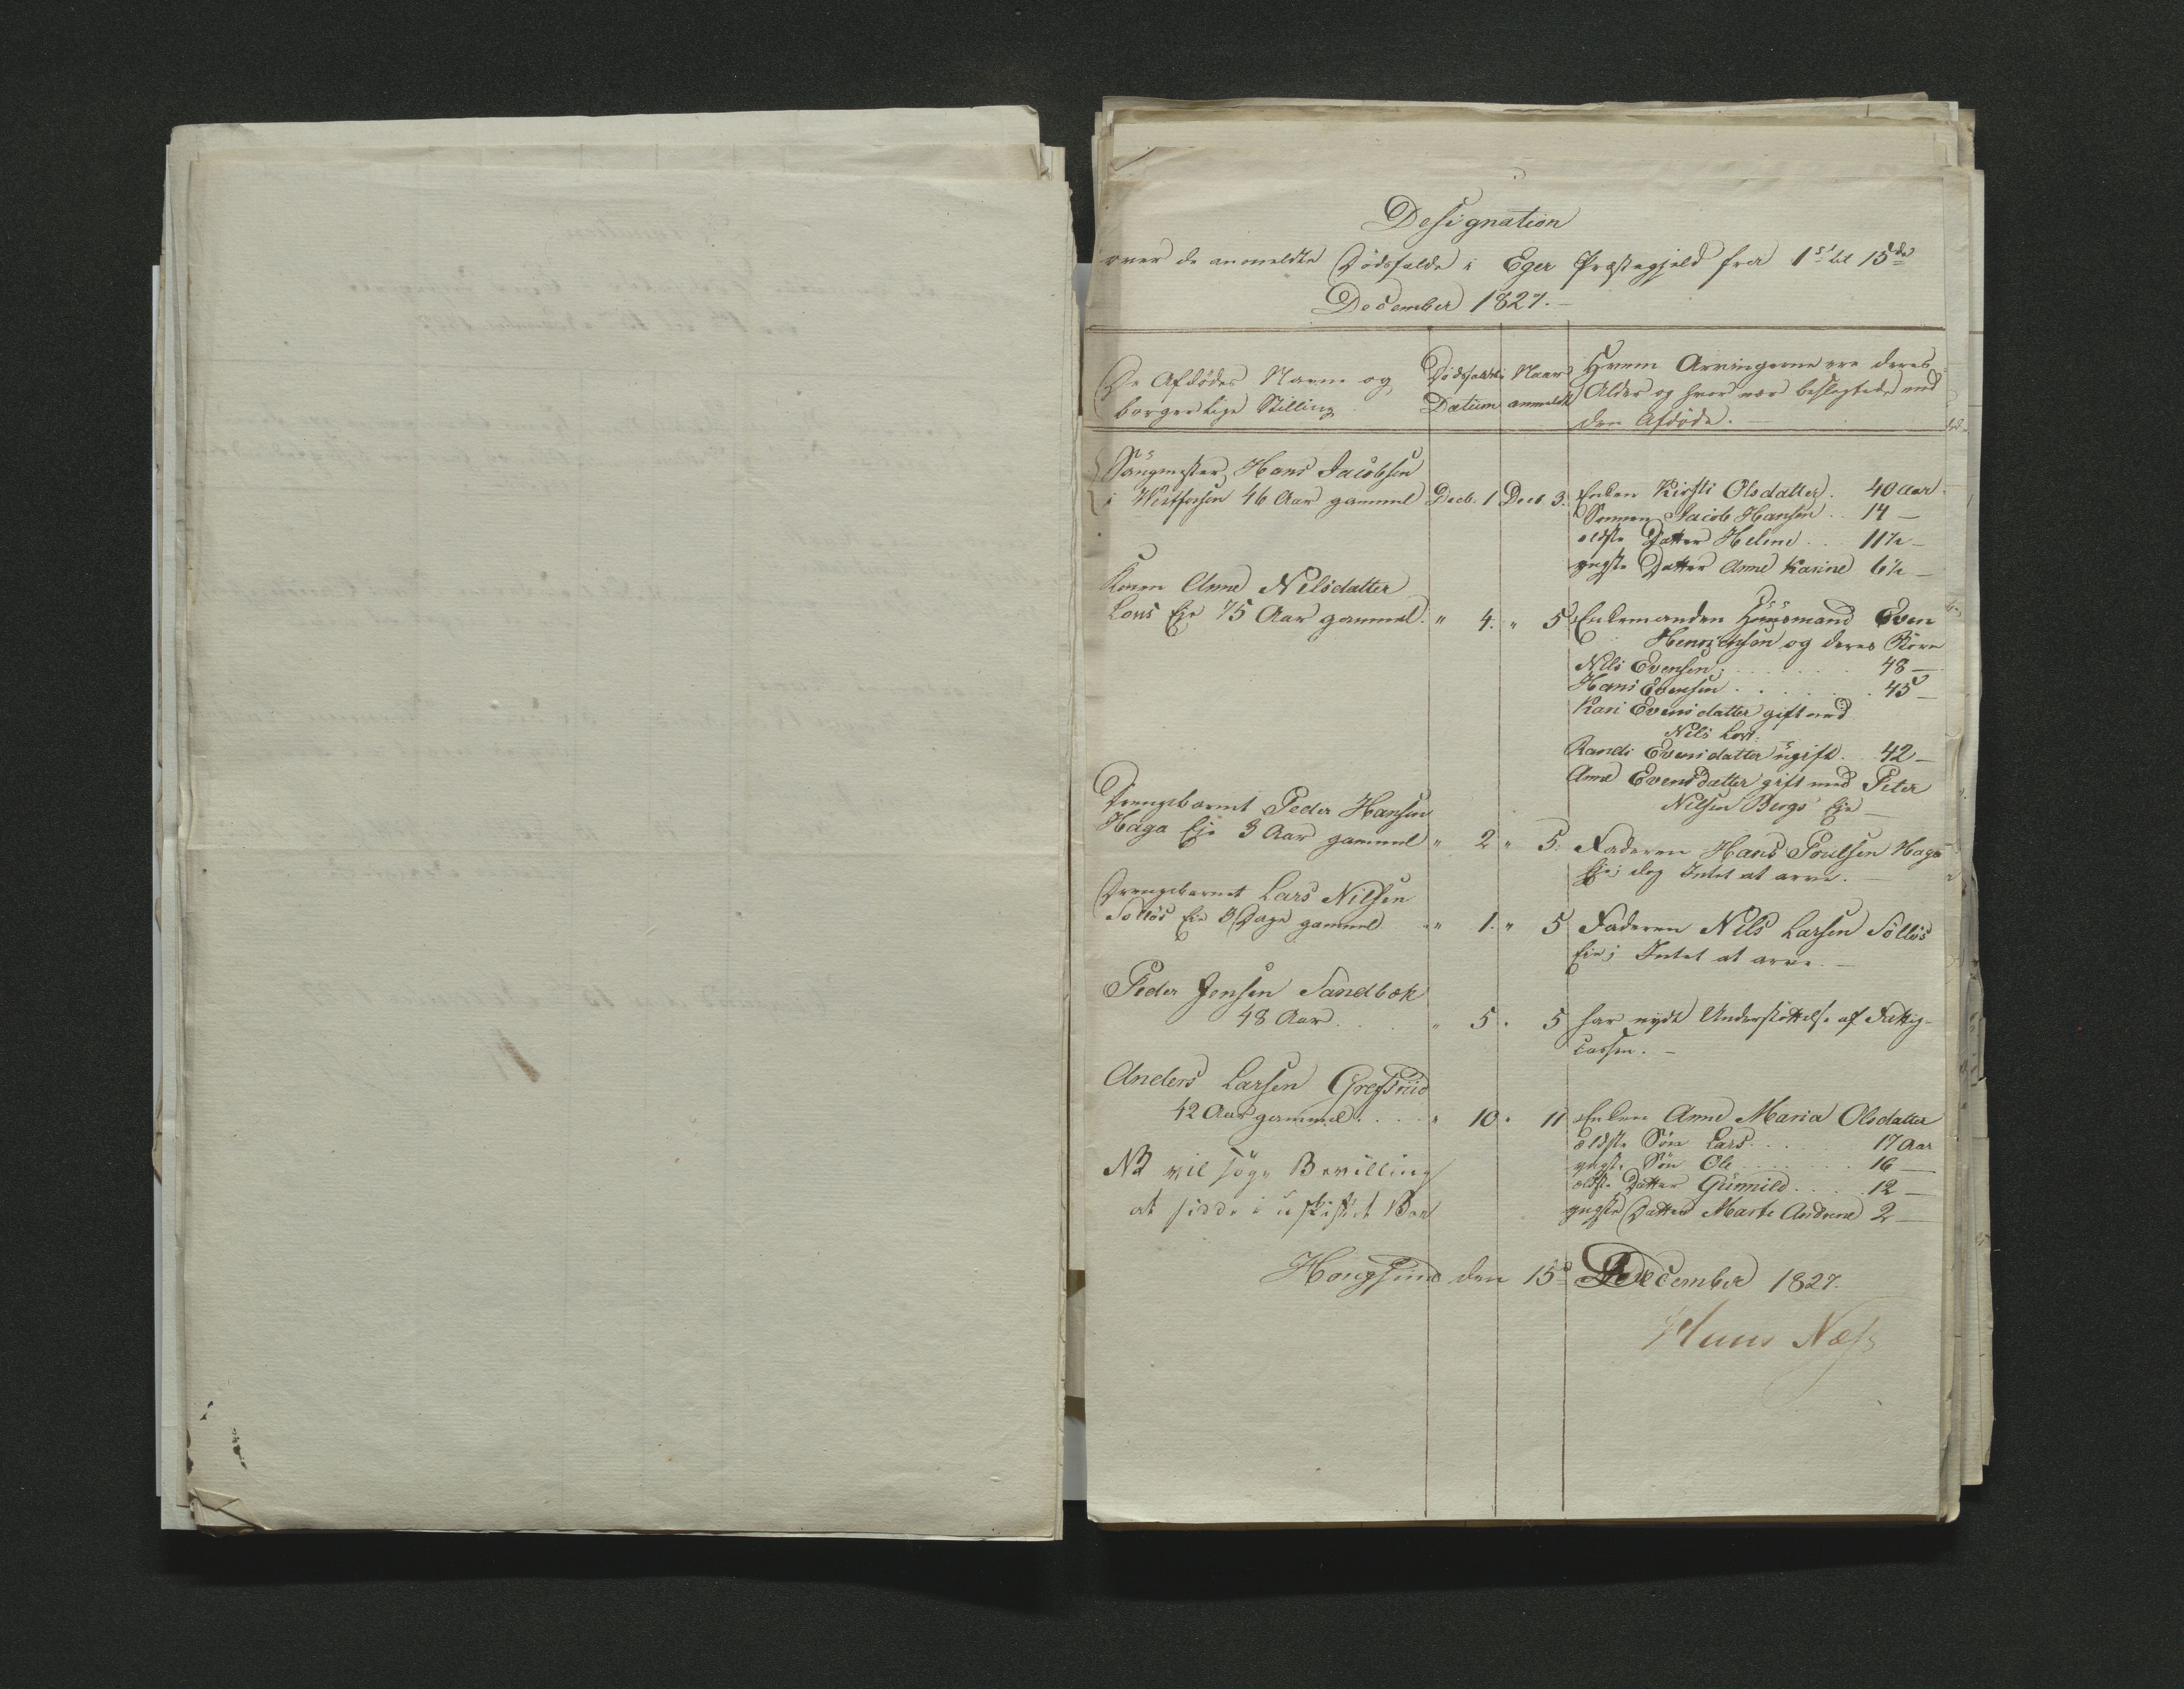 Designation
over de anmeldte Dödsfalde i Eger Præstegjeld fra 1st til 15de
December 1827.
De Afdödes Navn og
borgerlige Stilling
Dödsfaldets
Datum
Naar
anmeldt
Hvem Arvingerne ere deres
Alder og hvor nær beslegtede med
den Afdöde.
Saugmester Hans Jacobsen
i Westfossen 46 Aar gammel Decb. 1 Decb 3. Enken Kirsti Olsdatter. 40 Aar
Sönnen Jacob Hansen .. 14 —
eldste Datter Helene ... 11½ —
yngste Datter Anne Karine 6½ —
Konen Anne Nilsdatter
Lovs Eje 75 Aar gammel. " 4. " 5 Enkemanden Huusmand Even
Henrichsen og deres Börn
Nils Evensen ..... 48 —
Hans Evensen ..... 45 —
Kari Evensdatter gift med
Nils Lovs.
Randi Evensdatter ugift. 42 —
Anne Evensdatter gift med Peter
Nilsen Bergs Eje —
Drengebarnet Peder Hansen
Haga Eje 3 Aar gammel " 2 " 5. Faderen Hans Poulsen Haga
Eje; dog Intet at arve. —
Drengebarnet Lars Nilsen
Solløs Eie 3 Dage gammel " 1. " 5 Faderen Nils Larsen Sölløs
Eie; Intet at arve. —
Peder Jensen Sandbæk
48 Aar .... " 5 " 5 har nydt Understöttelse af Fattig-
cassen. —
Anders Larsen Gregsrud
42 Aar gammel .... " 10 " 11 Enken Anne Maria Olsdatter
eldste Sön Lars ... 17 Aar
yngste Sön Ole ..... 16 —
eldste Datter Gunnild .... 12 —
yngste Datter Marte Andrea 2 —
NB vil söge Bevilling
at sidde i uskiftet Boe
Hougsund den 15de December 1827.
Hans Næss